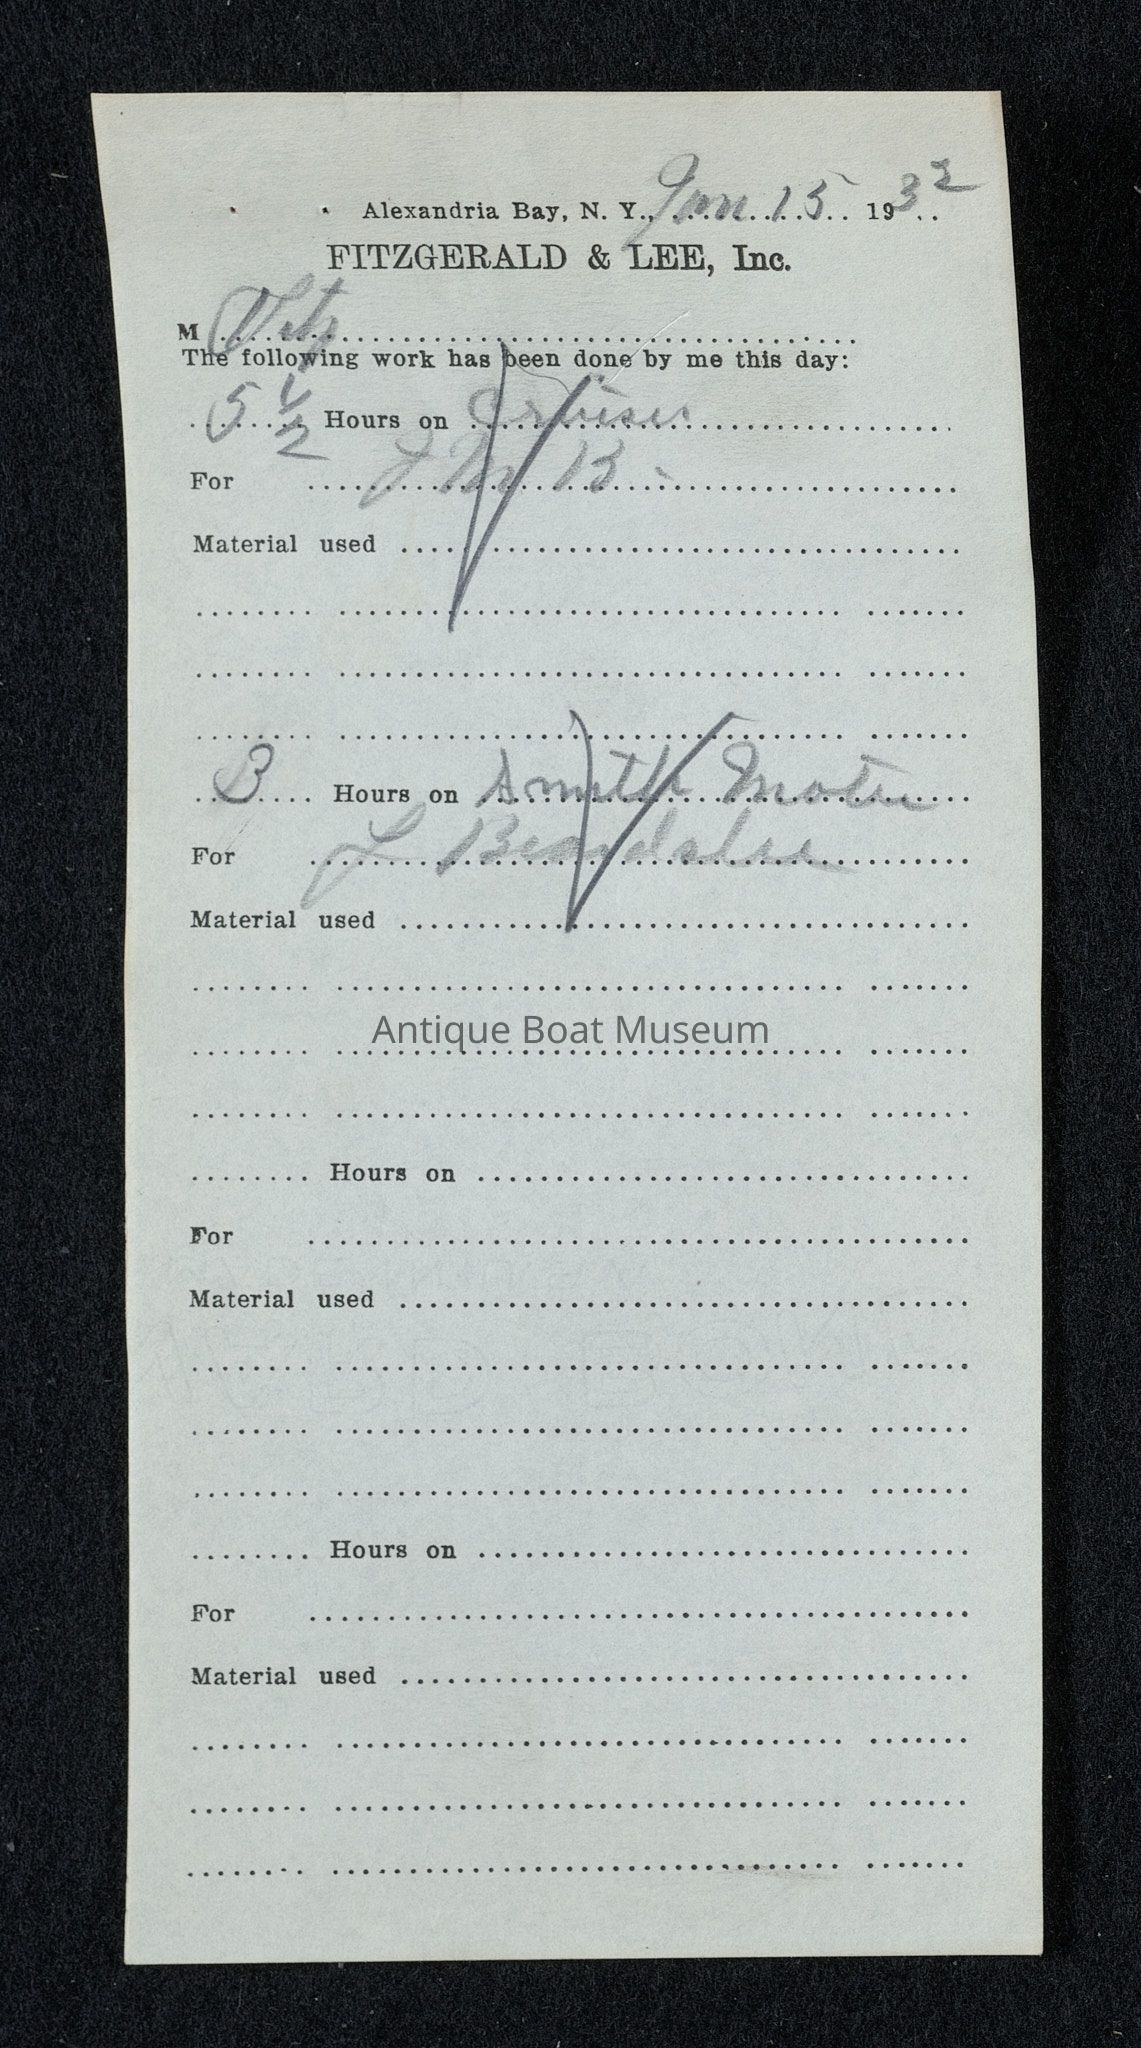 Alexandria Bay, N. Y., Jan 15 1932
FITZGERALD & LEE, Inc.
M Fitz
The following work has been done by me this day:
5 1/2 Hours on Cruiser
For J M B -
Material used
3 Hours on Smith Motor
For L Beardslee
Material used
Antique Boat Museum
Hours on
For
Material used
Hours on
For
Material used